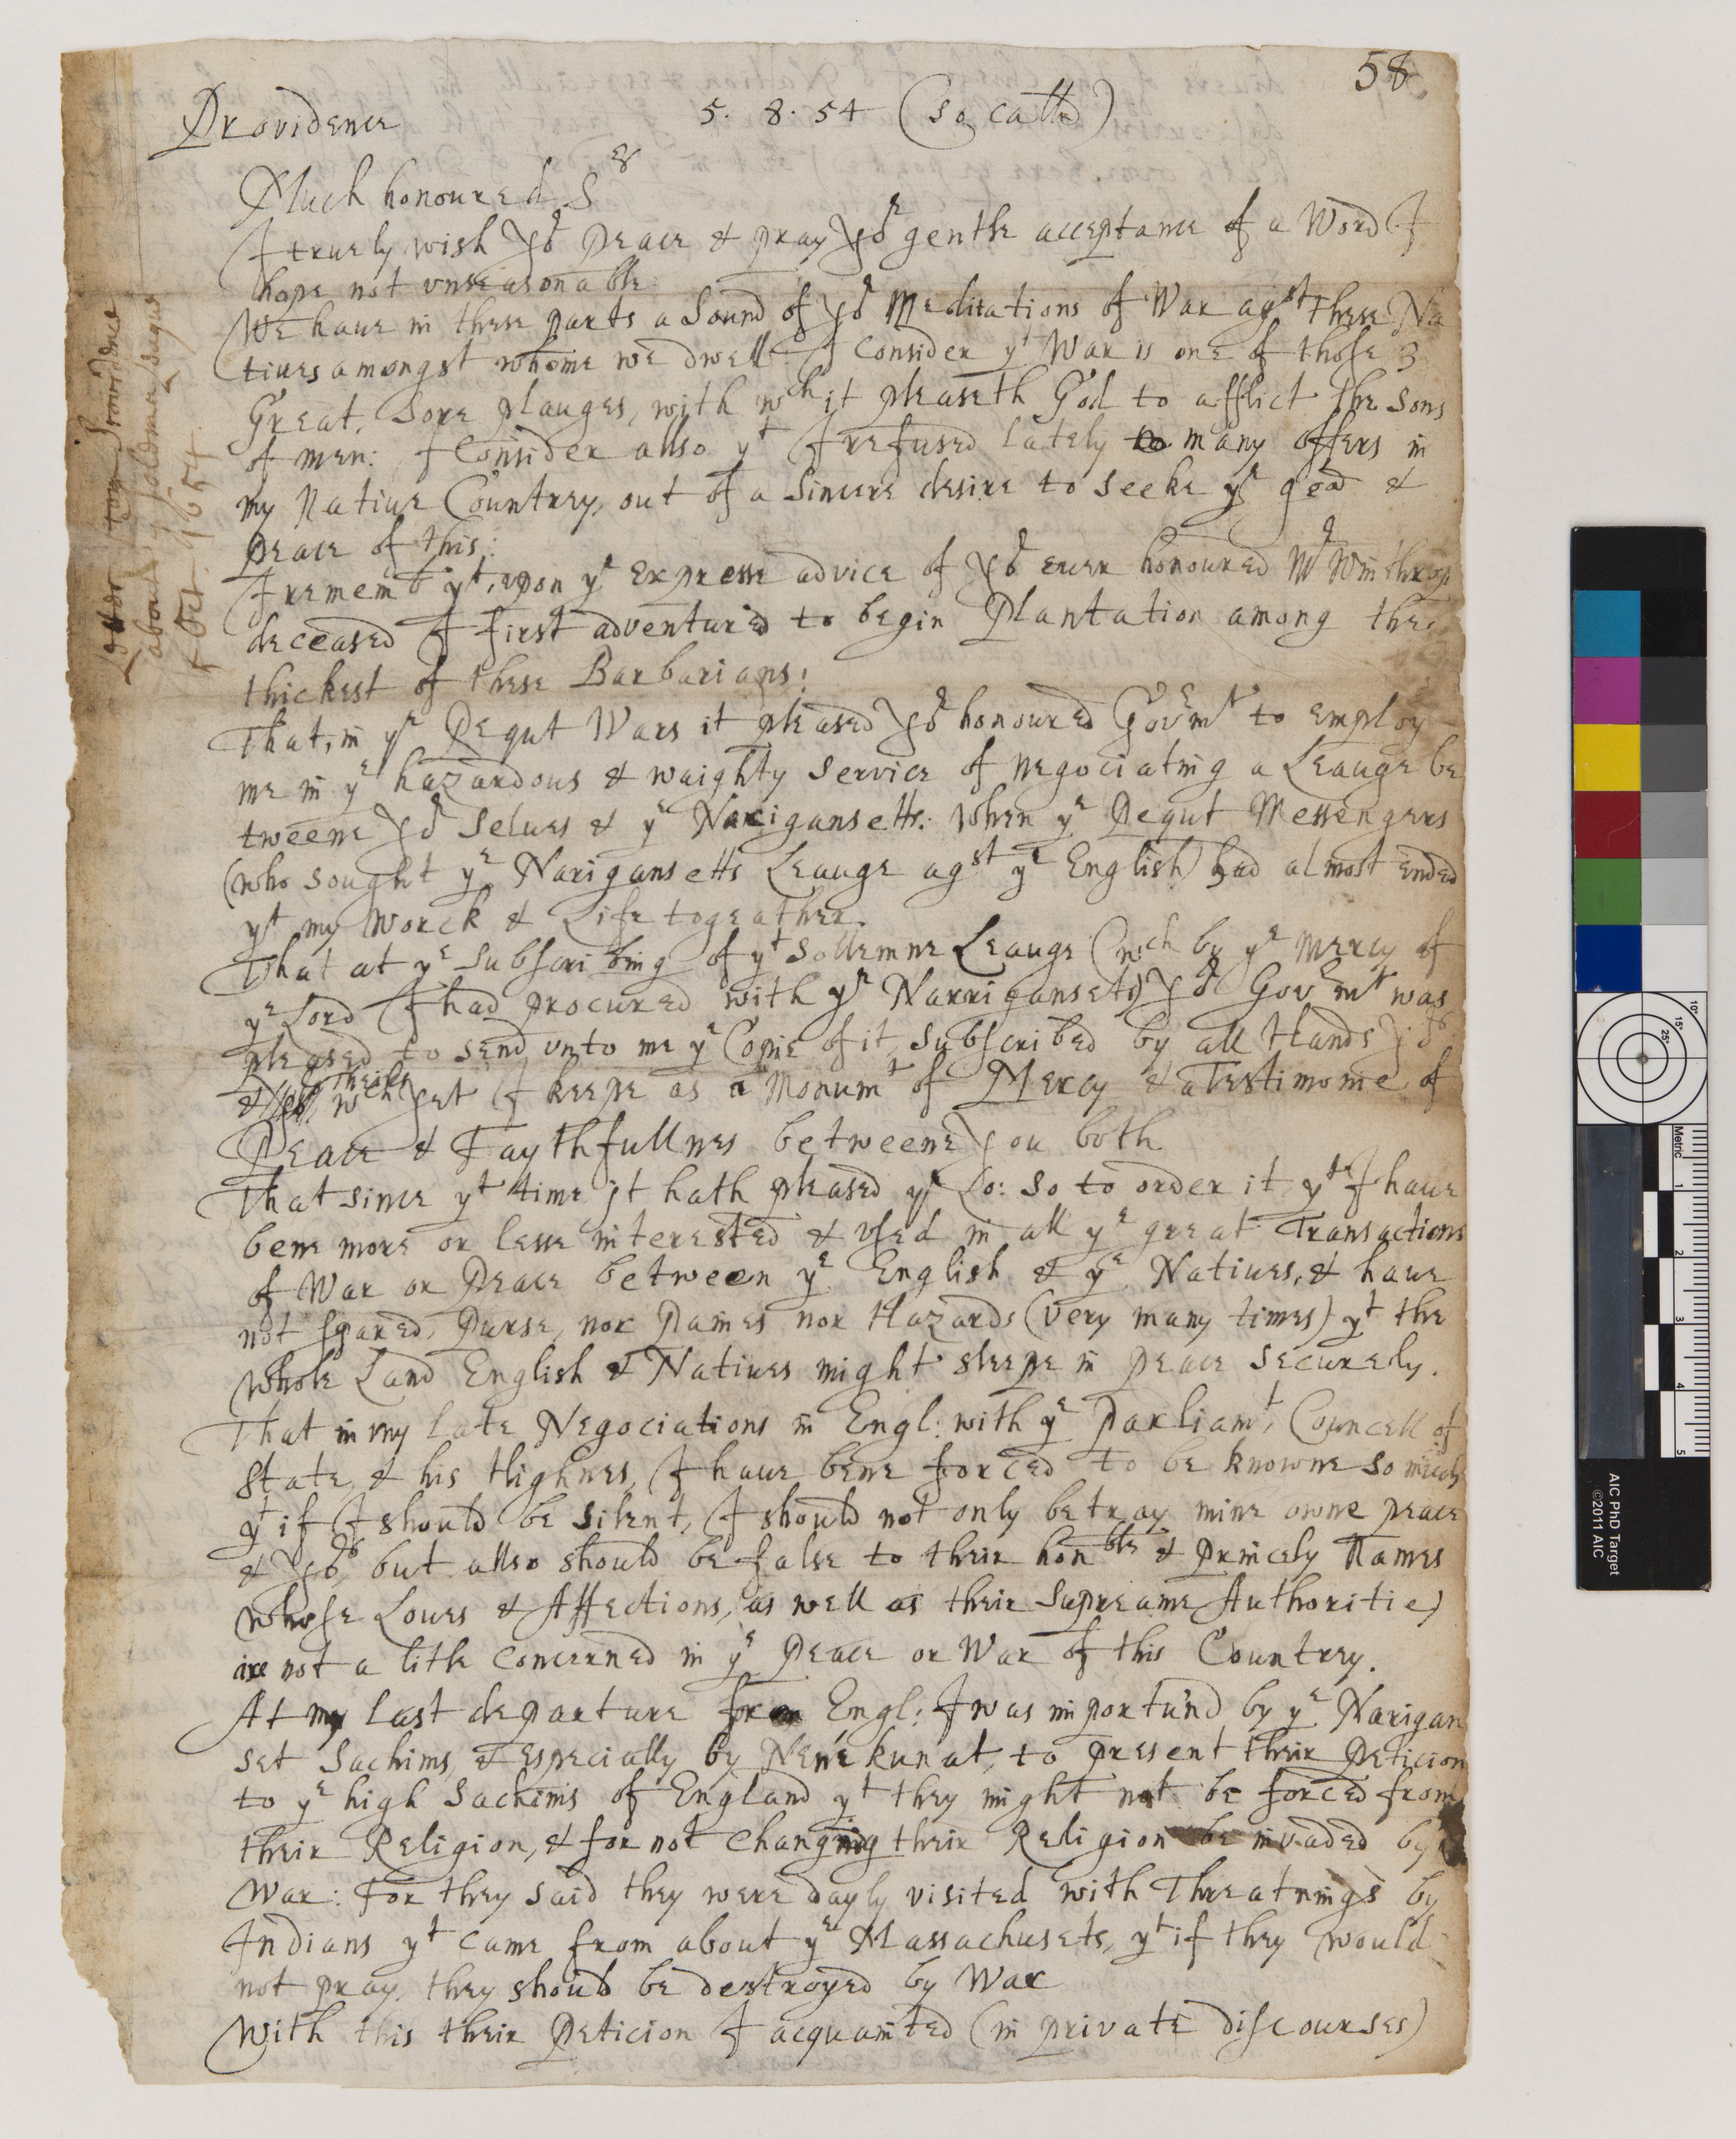 58
Providence 5. 8. 54 (so calld)
Much honoured Srs
I truely wish yor peace & pray yor gentle acceptance of a Word I
hope not vnseasonable.
We haue in these parts a Sound of yor Meditations of War agst these Na
tiues amongst whome we dwell. I consider yt War is one of those 3
Great, Sore plauges, with wch it pleaseth God to afflict the Sons
of men: I Consider allso yt I refused lately many offers in
my Natiue Countrey, out of a Sincere desire to seeke ye good &
peace of this:
I rememb yt, vpon ye Expresse advice of yor euer honoured Mr Winthrop
deceased I first adventured to begin Plantation among the
thickest of these Barbarians:
That, in ye Pequt Wars it pleased yor honoured Govermt to employ
me in ye hazardous & waighty Service of negociating a Leauge be
tweene yor Selues & ye Narigansetts: when ye Pequt Messengers
(who sought ye Narigansetts Leauge agst ye English) had almost ended
yt my Worck & Life togeather.
That at ye Subscribing of yt Sollemne Leauge (wch by ye mercy of
ye Lord I had procured with ye Narrigansets) yor Govermt was
pleased to send vnto me ye Copie of it, subscribed by all Hands yors
& theirs wch yet I keepe as a Monumt of Mercy & a Testimonie of
Peace & Faythfullnes betweene you both
That since yt time it hath pleased ye Lo: so to order it yt I haue
bene more or lesse interested & vsed in all ye great Transactions
of War or Peace between ye English & ye Natiues, & haue
not spared, Purse, nor Paines nor Hazards (very many times) yt the
whole Land English & Natiues might sleepe in peace securely.
That in my late Negociations in Engl: with ye Parliamt, Councell of
State, & his Highnes, I haue bene forced to be knowne so much
yt if I should be silent, I should not only betray mine owne peace
& yors, but allso should be false to their honble & Princely Names
whose Loues & Affections, as well as their Supreame Authoritie)
are not a litle concerned in ye Peace or War of this Countrey.
At my last departure for Engl: I was importun'd by ye Narigan
set Sachims, & especially by Nenekunat, to present their Peticion
to ye high Sachims of England yt they might not be forced from
their Religion, & for not changing their Religion be invaded by
War: For they said they were dayly visited with Threatnings by
Indians yt came from about ye Massachusets, yt if they would
not pray, they should be destroyed by War
With this their Peticion I acquainted (in private discourses)
Letter from Providence
about
5 Oct. 1654